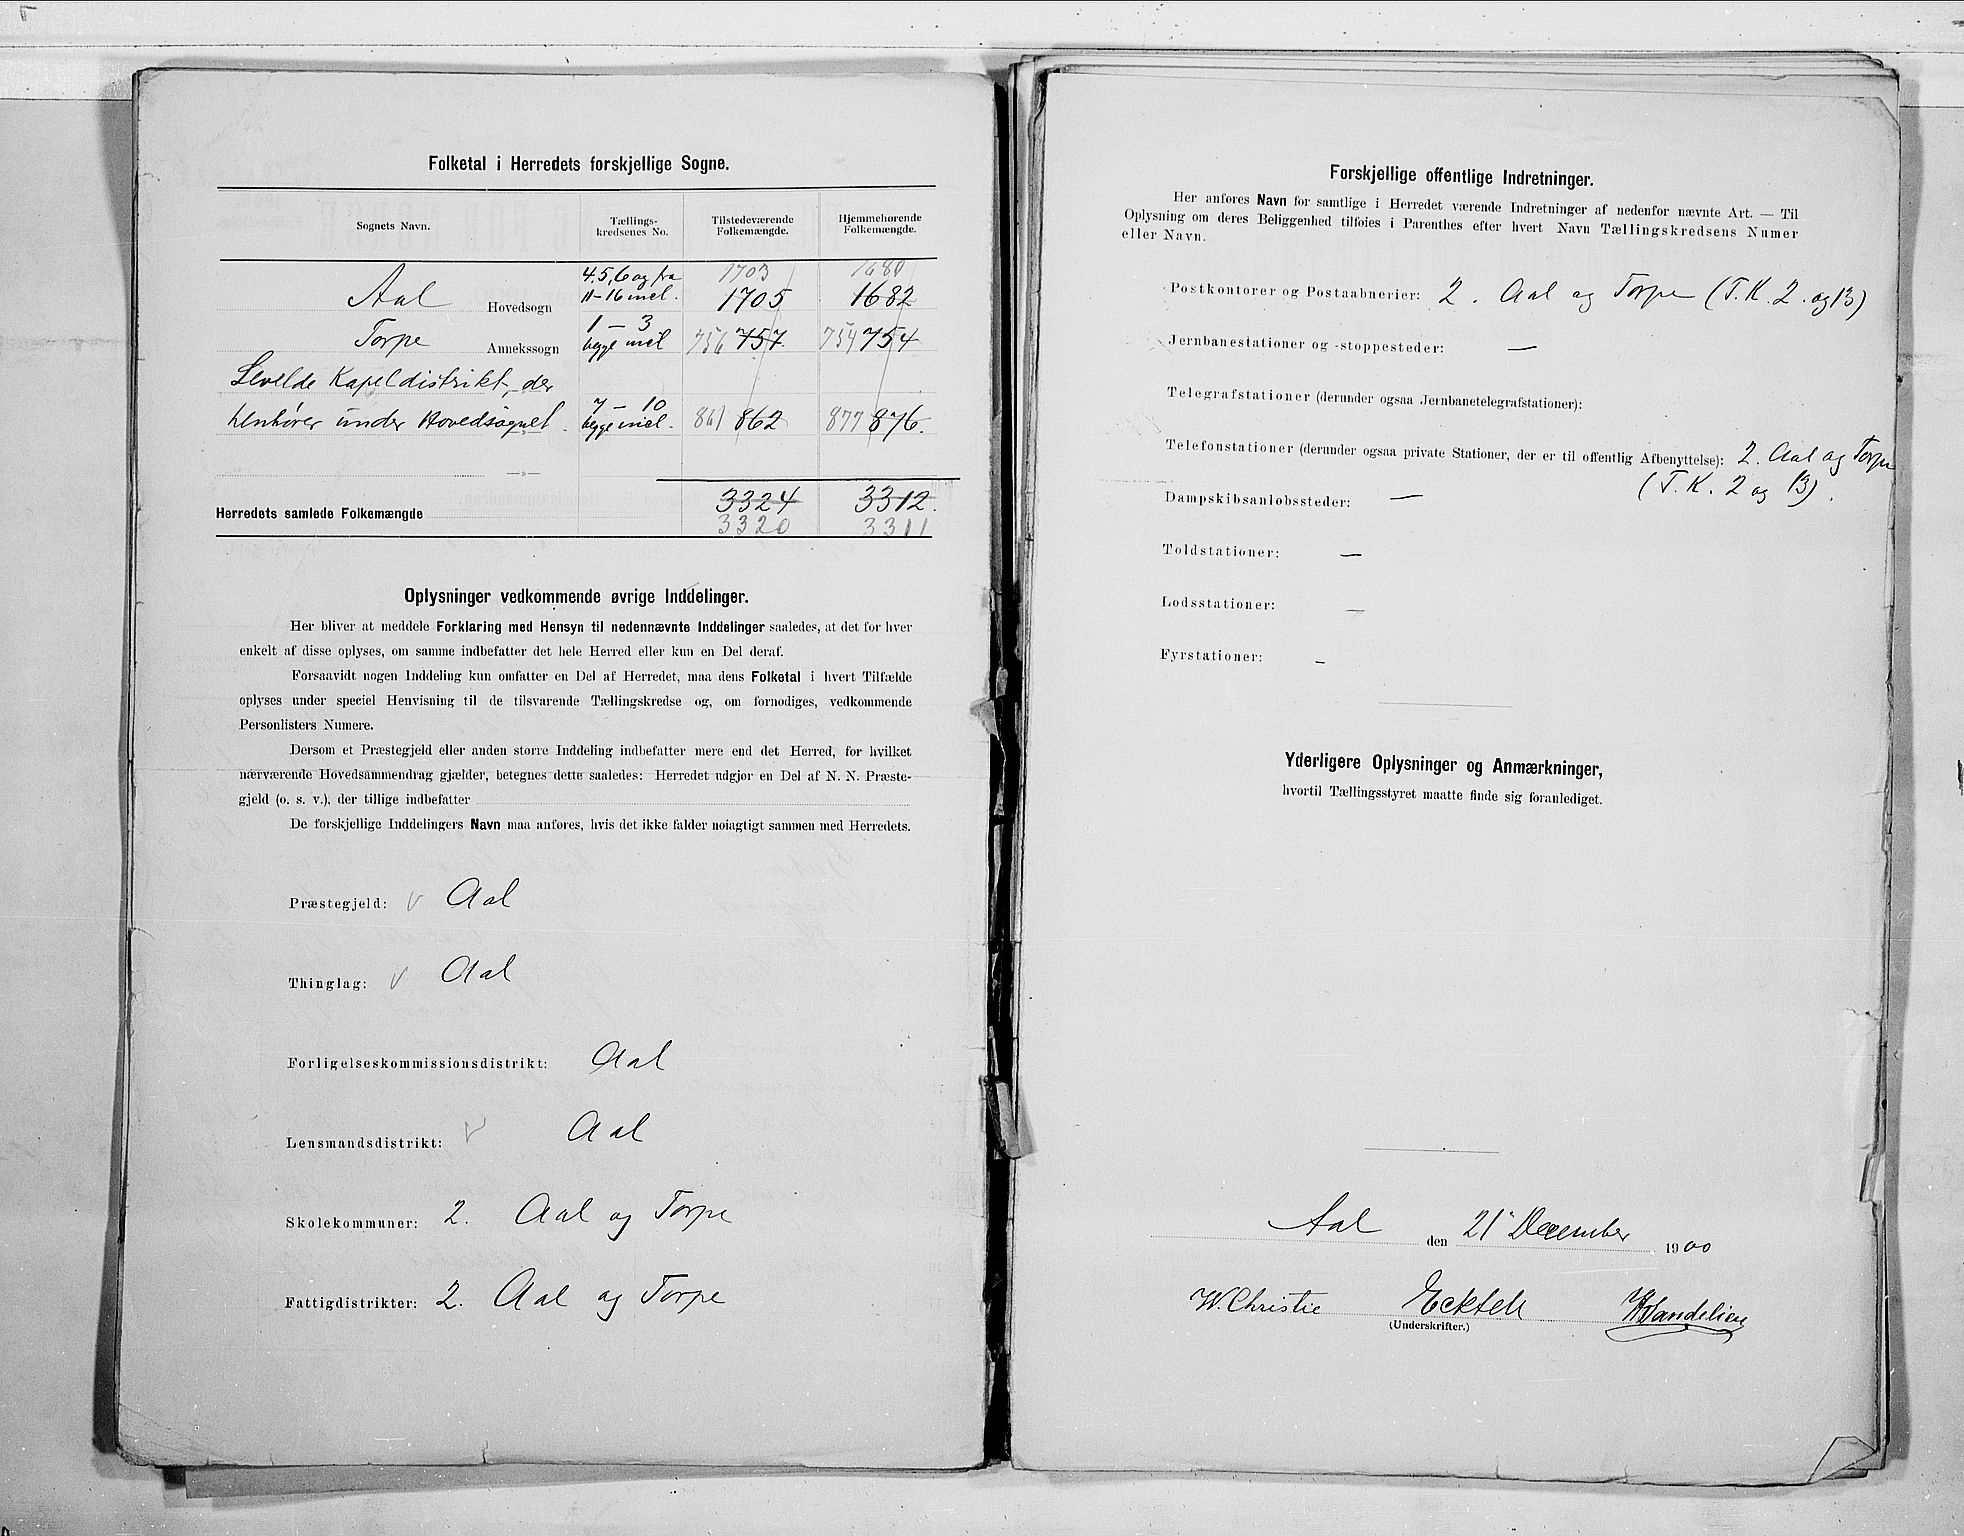 Folketal i Herredets forskjellige Sogne.
Sognets Navn. Tællings- kredsenes No. Tilstedeværende Folkemængde. Hjemmehørende Folkemængde.
4, 5, 6 og fra 1703 1680
Aal Hovedsogn 11-16 incl. 1705 1682
1 - 3
Torpe Annekssogn begge incl 756 757 754 754
Leveld Kapeldistrikt, der
7 - 10
henhører under Hovedsognet. begge incl. 861 862 877 876.
—»—
3324 3312.
Herredets samlede Folkemængde
3320 3311
Oplysninger vedkommende øvrige Inddelinger.
Her bliver at meddele Forklaring med Hensyn til nedennævnte Inddelinger saaledes, at det for hver
enkelt af disse oplyses, om samme indbefatter det hele Herred eller kun en Del deraf.
Forsaavidt nogen Inddeling kun omfatter en Del af Herredet, maa dens Folketal i hvert Tilfælde
oplyses under speciel Henvisning til de tilsvarende Tællingskredse og, om fornødiges, vedkommende
Personlisters Numere.
Dersom et Præstegjeld eller anden større Inddeling indbefatter mere end det Herred, for hvilket
nærværende Hovedsammendrag gjælder, betegnes dette saaledes: Herredet udgjør en Del af N. N. Præste-
gjeld (o. s. v.), der tillige indbefatter
De forskjellige Inddelingers Navn maa anføres, hvis det ikke falder nøiagtigt sammen med Herredets.
Præstegjeld: v Aal
Thinglag: v Aal
Forligelseskommissionsdistrikt: Aal
Lensmandsdistrikt: v Aal
Skolekommuner: 2. Aal og Torpe
Fattigdistrikter: 2. Aal og Torpe
Forskjellige offentlige Indretninger.
Her anføres Navn for samtlige i Herredet værende Indretninger af nedenfor nævnte Art. — Til
Oplysning om deres Beliggenhed tilføies i Parenthes efter hvert Navn Tællingskredsens Numer
eller Navn.
Postkontorer og Postaabnerier: 2. Aal og Torpe (T. K. 2. og 13)
Jernbanestationer og -stoppesteder: —
Telegrafstationer (derunder ogsaa Jernbanetelegrafstationer):
Telefonstationer (derunder ogsaa private Stationer, der er til offentlig Afbenyttelse): 2. Aal og Torpe
(T. K. 2 og 13).
Dampskibsanløbssteder: —
Toldstationer: —
Lodsstationer: —
Fyrstationer: —
Yderligere Oplysninger og Anmærkninger,
hvortil Tællingsstyret maatte finde sig foranlediget.
Aal den 21' December 1900
W. Christie
(Underskrifter.)